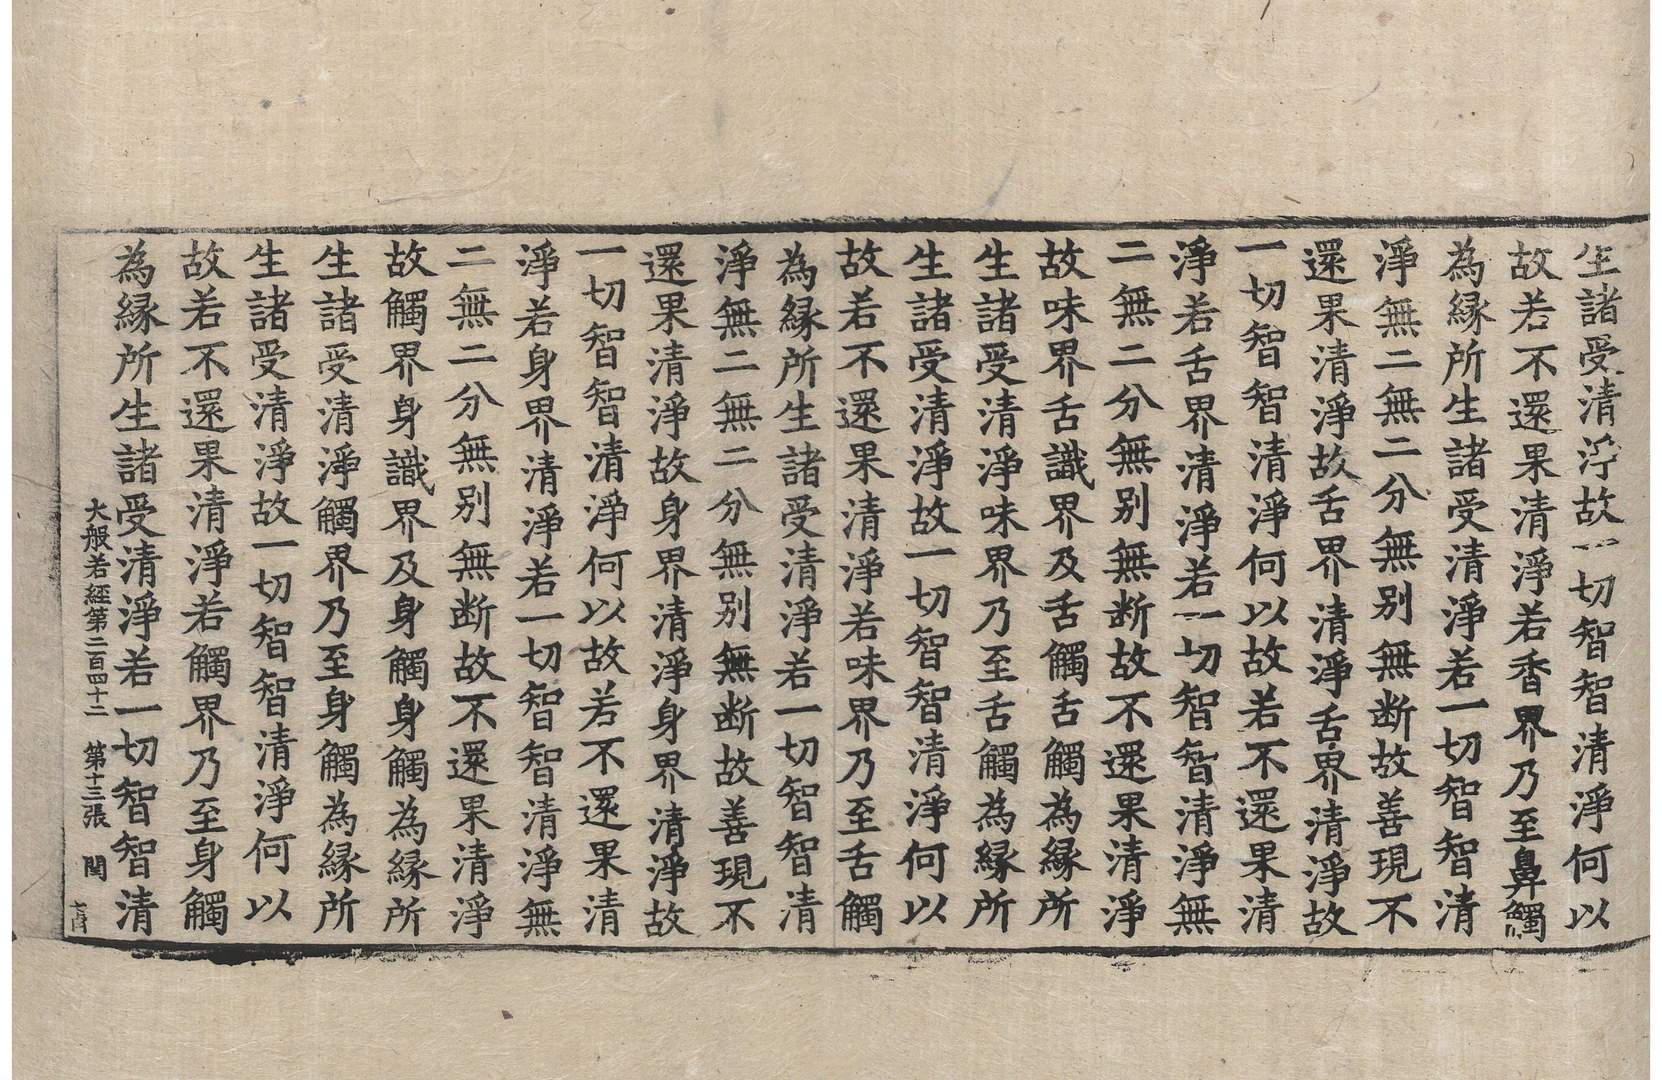 生諸受清淨故一切智智清淨何以
故若不還果清淨若香界乃至鼻觸
為縁所生諸受清淨若一切智智清
淨無二無二分無别無断故善現不
還果清淨故舌界清淨舌界清淨故
一切智智清淨何以故若不還果清
淨若舌界清淨若一切智智清淨無
二無二分無别無断故不還果清淨
故味界舌識界及舌觸舌觸為縁所
生諸受清淨味界乃至舌觸為縁所
生諸受清淨故一切智智清淨何以
故若不還果清淨若味界乃至舌觸
為縁所生諸受清淨若一切智智清
淨無二無二分無别無断故善現不
還果清淨故身界清淨身界清淨故
一切智智清淨何以故若不還果清
淨若身界清淨若一切智智清淨無
二無二分無别無断故不還果清淨
故觸界身識界及身觸身觸為縁所
生諸受清淨觸界乃至身觸為縁所
生諸受清淨故一切智智清淨何以
故若不還果清淨若觸界乃至身觸
為縁所生諸受清淨若一切智智清
大般若經第二百四十二 第十三張 閏